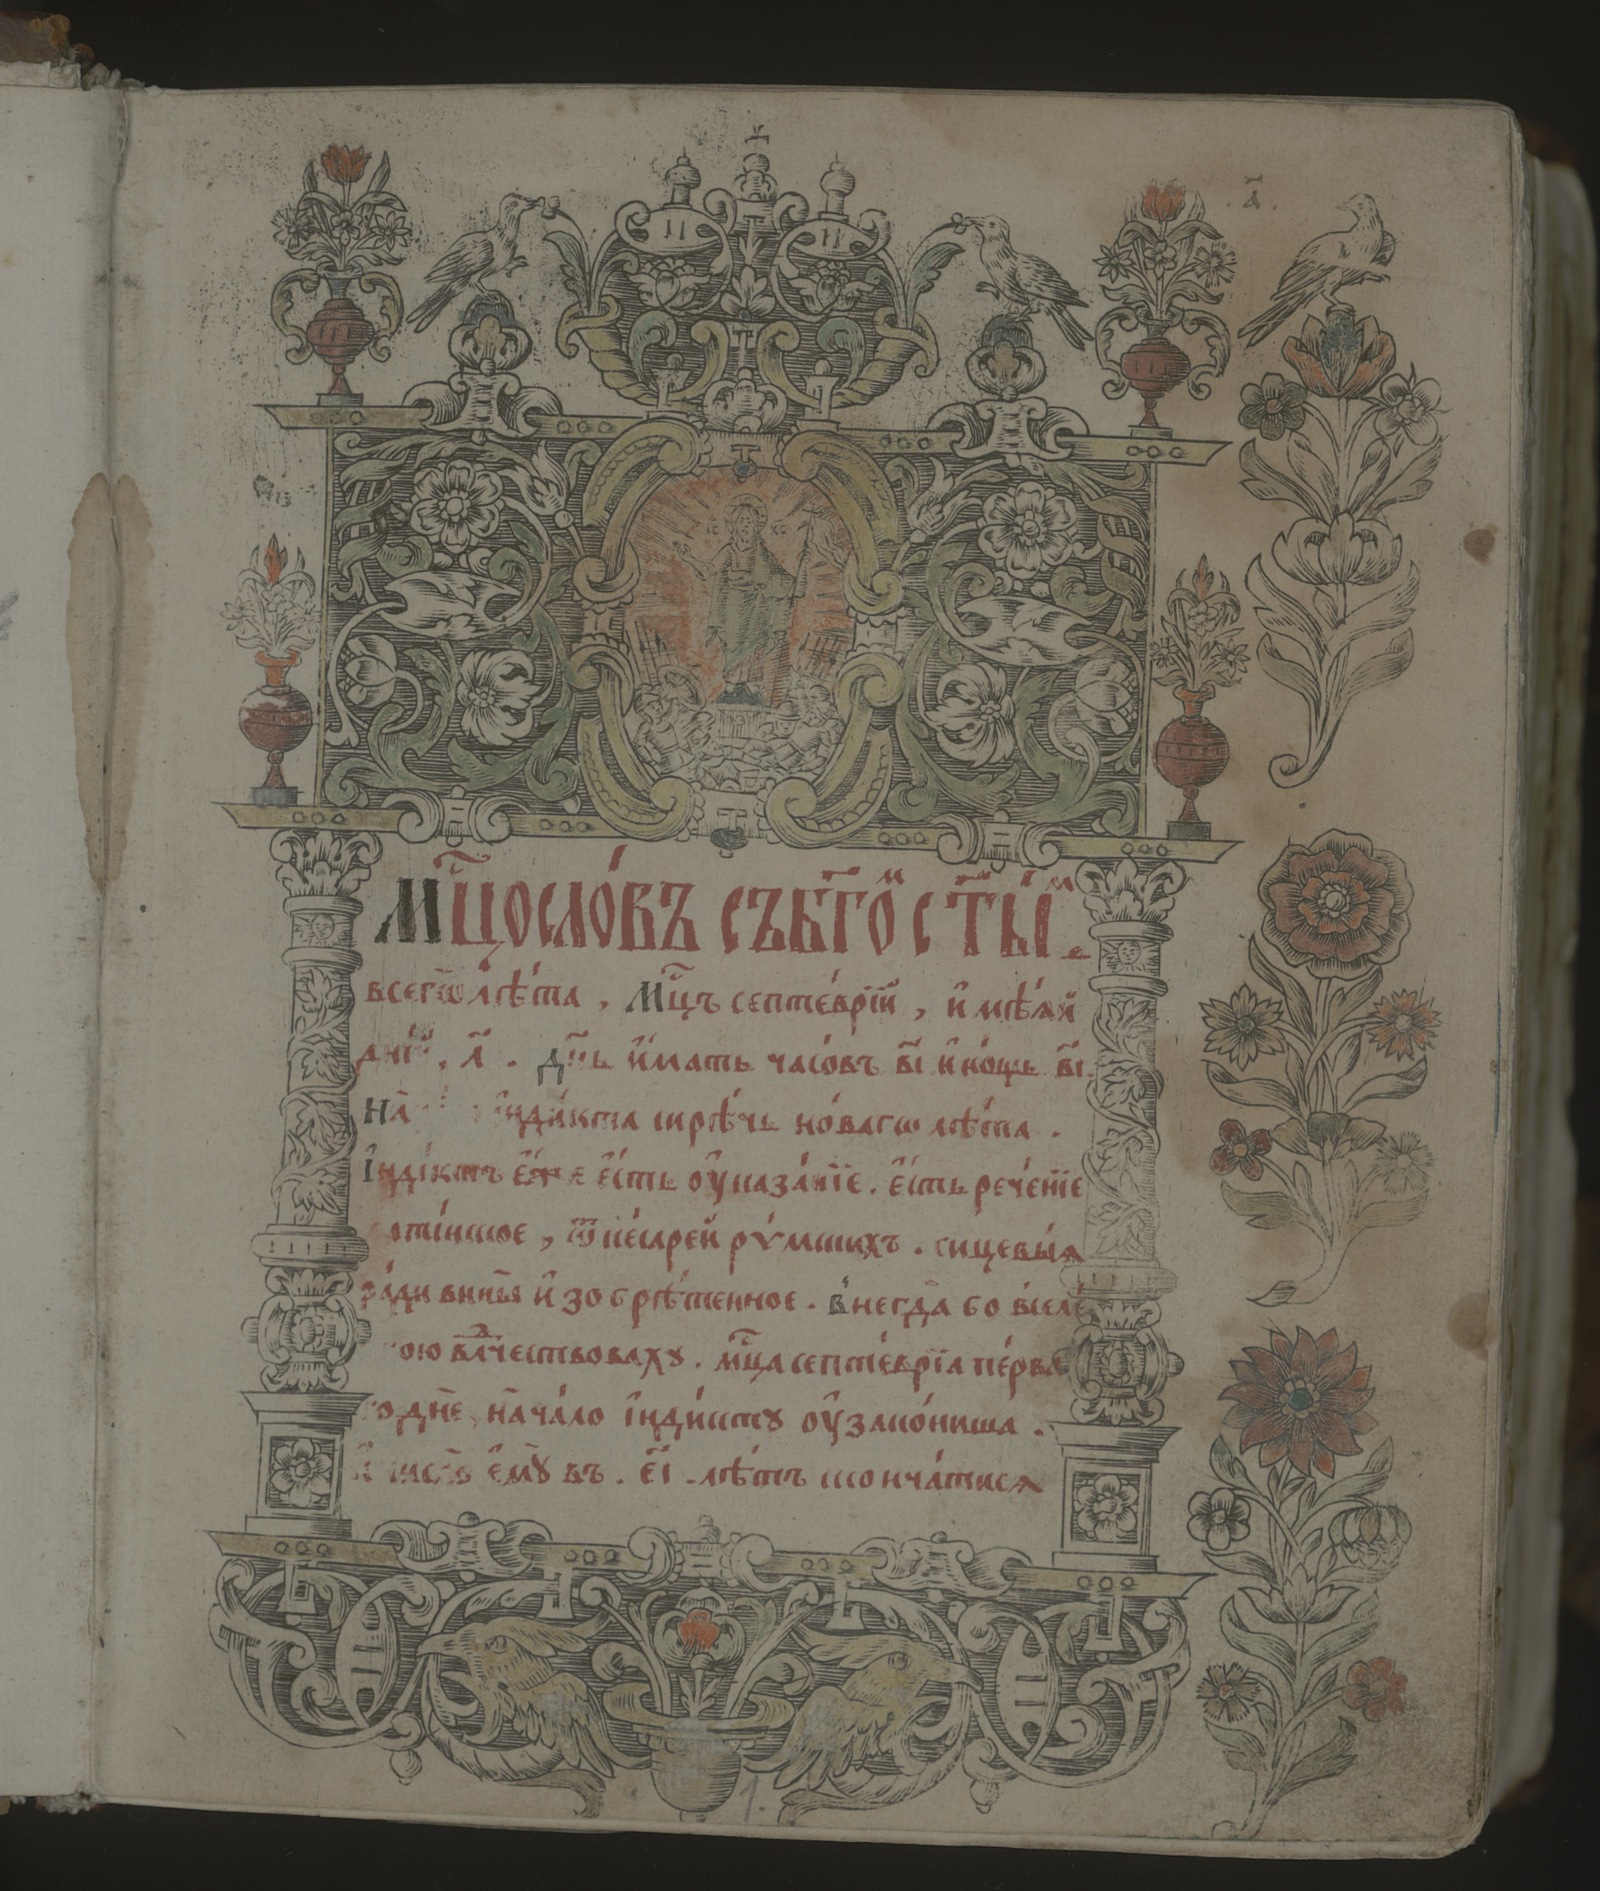 .а҃.
ІС ХС
Мц҃осло́въ съ бг҃о́м ст҃ы́м
всегѡ̀ лѣ́та, Мц҃ъ септе́врїй, и҆мѣ́ѧй
дні́й, л҃. Дн҃ь и҆́мать часо́въ в҃і и҆ но́щь в҃і.
і҆нди́кта сирѣ́чь но́вагѡ лѣ́та.
І҆нді́ктъ є҆́же є҆́сть ᲂу҆каза́нїе. є҆́сть рече́нїе
ѿ ке́сарей ри́мскихъ. сицевы́ѧ
ра́ди вины̀ и҆зѡбрѣ́те́нное. внегда̀ бо
влⷣчествоваху. мц҃а септе́врїа пе́рва
дн҃е, нача́ло і҆нди́кту ᲂу҆зако́ниша.
є҆мꙋ̀ въ. є҃і. лѣ́тъ сконча́тисѧ